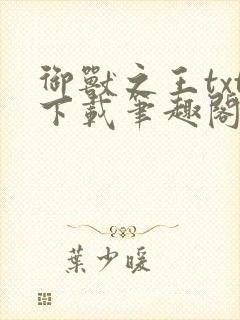 御獸之王txt
下載筆趣閣
葉少暖